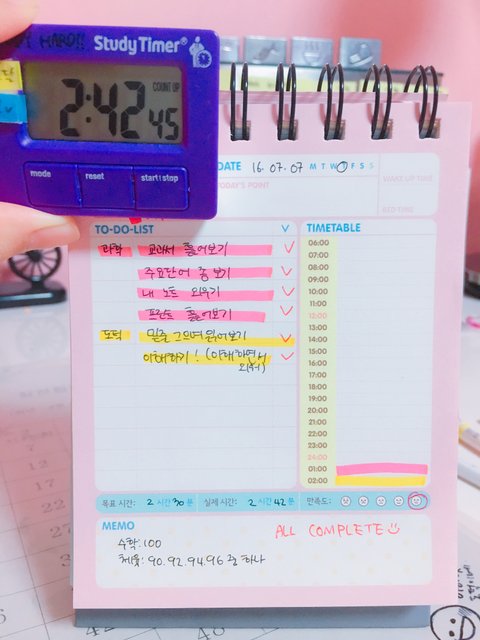 HARD!!
StudyTimer®
2:42 45
COUNT UP
mode reset start/stop
DATE 16.07.07 M T W F S S
TODAY'S POINT
WAKE UP TIME
BED TIME
TO-DO-LIST
과학 교과서 훑어보기
주요단어 줌 보기
내 노트 외우기
프린트 훑어보기
도덕 밑줄 그으며 읽어보기
이해하기! (이해하면서
외워)
TIMETABLE
06:00
07:00
08:00
09:00
10:00
11:00
12:00
13:00
14:00
15:00
16:00
17:00
18:00
19:00
20:00
21:00
22:00
23:00
24:00
01:00
02:00
목표 시간: 2 시간 30 분 실제 시간: 2 시간 42 분 만족도:
MEMO
ALL COMPLETE
수학:100
체육: 90.92.94.96 중 하나